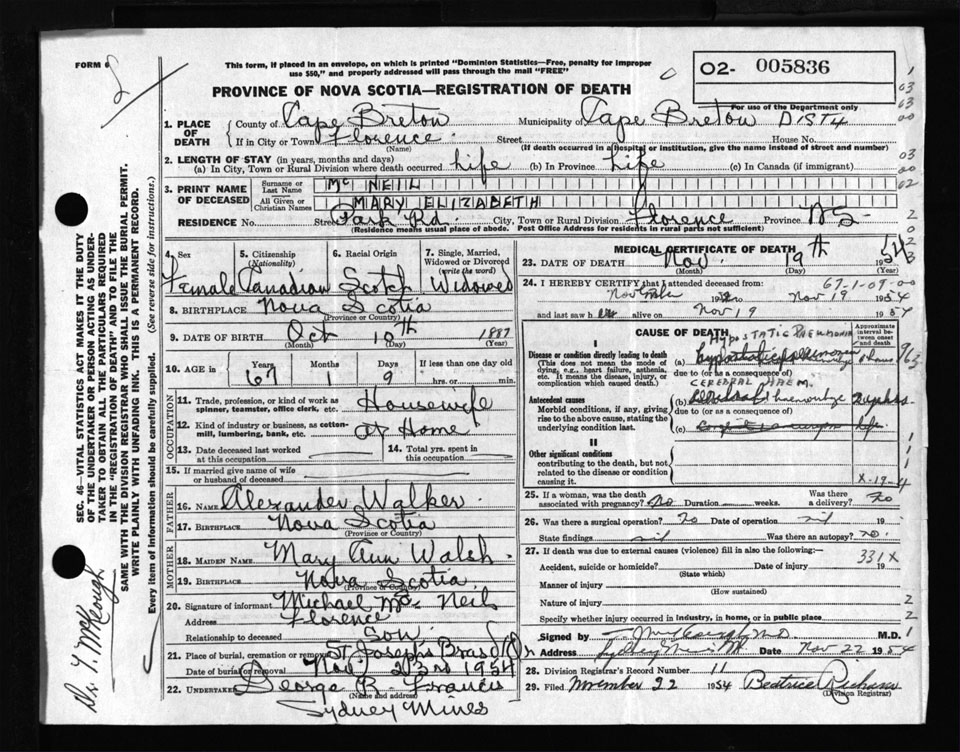 FORM 6
This form, if placed in an envelope, on which is printed "Dominion Statistics—Free, penalty for improper
use $50," and properly addressed will pass through the mail "FREE"
O2- 005836
For use of the Department only
PROVINCE OF NOVA SCOTIA—REGISTRATION OF DEATH
1. PLACE OF DEATH
County of Cape Breton Municipality of Cape Breton DIST 4
If in City or Town Florence Street House No.
(Name) (If death occurred in a hospital or institution, give the name instead of street and number)
2. LENGTH OF STAY (in years, months and days)
(a) In City, Town or Rural Division where death occurred Life (b) In Province Life (c) In Canada (if immigrant)
3. PRINT NAME OF DECEASED
Surname or Last Name Mc NEIL
All Given or Christian Names MARY ELIZABETH
RESIDENCE No. Street Park Rd. City, Town or Rural Division Florence Province NS
(Residence means usual place of abode. Post Office Address for residents in rural parts not sufficient)
4. Sex Female
5. Citizenship (Nationality) Canadian
6. Racial Origin Scotch
7. Single, Married, Widowed or Divorced (write the word) Widowed
8. BIRTHPLACE Nova Scotia
(Province or Country)
9. DATE OF BIRTH Oct 10th 1887
(Month) (Day) (Year)
10. AGE in Years 67 Months 1 Days 9 If less than one day old
hrs. or min.
OCCUPATION
11. Trade, profession, or kind of work as spinner, teamster, office clerk, etc. Housewife
12. Kind of industry or business, as cotton-mill, lumbering, bank, etc. At Home
13. Date deceased last worked at this occupation
14. Total yrs. spent in this occupation
15. If married give name of wife or husband of deceased
FATHER
16. NAME Alexander Walker
17. BIRTHPLACE Nova Scotia
(Province or Country)
MOTHER
18. MAIDEN NAME Mary Ann Walsh
19. BIRTHPLACE Nova Scotia
(Province or Country)
20. Signature of informant Michael Mc Neil
Address Florence
Relationship to deceased Son
21. Place of burial, cremation or removal St Josephs Bras d'Or
Date of burial or removal Nov. 23rd 1954
22. UNDERTAKER George R. Francis
(Name and address)
Sydney Mines
MEDICAL CERTIFICATE OF DEATH
23. DATE OF DEATH Nov. 19th 1954
(Month) (Day) (Year)
67-1-09-00
24. I HEREBY CERTIFY that I attended deceased from
November 19 to Nov 19 1954
and last saw h alive on Nov 19 1954
CAUSE OF DEATH
Approximate interval between onset and death
HYPOSTATIC PNEUMONIA
I
Disease or condition directly leading to death
(This does not mean the mode of dying, e.g., heart failure, asthenia, etc. It means the disease, injury, or complication which caused death.)
(a)
due to (or as a consequence of)
CEREBRAL HAEM.
Antecedent causes
Morbid conditions, if any, giving rise to the above cause, stating the underlying condition last.
(b) haemorrhage
due to (or as a consequence of)
(c) life
II
Other significant conditions
contributing to the death, but not related to the disease or condition causing it.
X-19-4
25. If a woman, was the death associated with pregnancy? No Duration weeks. Was there a delivery? No
26. Was there a surgical operation? No Date of operation nil 19
State findings nil Was there an autopsy? no.
27. If death was due to external causes (violence) fill in also the following:—
331X
Accident, suicide or homicide? Date of injury 19
(State which)
Manner of injury
(How sustained)
Nature of injury
Specify whether injury occurred in industry, in home, or in public place
Signed by M.D.
Address Sydney Mines Date Nov 22 1954
28. Division Registrar's Record Number 11
29. Filed November 22 1954 Beatrice
(Division Registrar)
SEC. 46—VITAL STATISTICS ACT MAKES IT THE DUTY
OF THE UNDERTAKER OR PERSON ACTING AS UNDER-
TAKER TO OBTAIN ALL THE PARTICULARS REQUIRED
IN THE "REGISTRATION OF DEATH" AND TO FILE THE
SAME WITH THE DIVISION REGISTRAR WHO SHALL ISSUE THE BURIAL PERMIT.
WRITE PLAINLY WITH UNFADING INK. THIS IS A PERMANENT RECORD.
Every item of information should be carefully supplied. (See reverse side for instructions.)